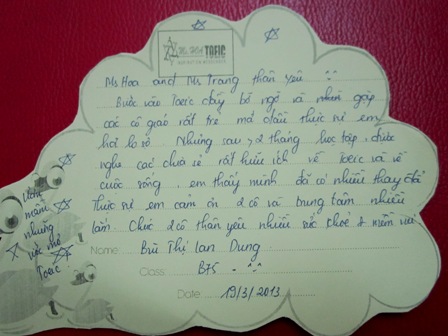 Ms Hoa TOEIC
Ms Hoa and Ms Trang thân yêu
Bước vào Toeic đầy bỡ ngỡ và nhất gặp
các cô giáo rất trẻ mà thực sự em
hơi lo sợ. Nhưng sau >2 tháng học tập, được
nghe các chia sẻ rất hữu ích về Toeic và về
cuộc sống, em thấy mình đã có nhiều thay đổi
Thực sự em cảm ơn 2 cô và trung tâm nhiều
lắm. Chúc 2 cô thân yêu nhiều sức khoẻ & niềm vui
Name Bùi Thị Lan Dung
Class B75
Date 19/3/2013
mầm
những
ước mơ
Toeic